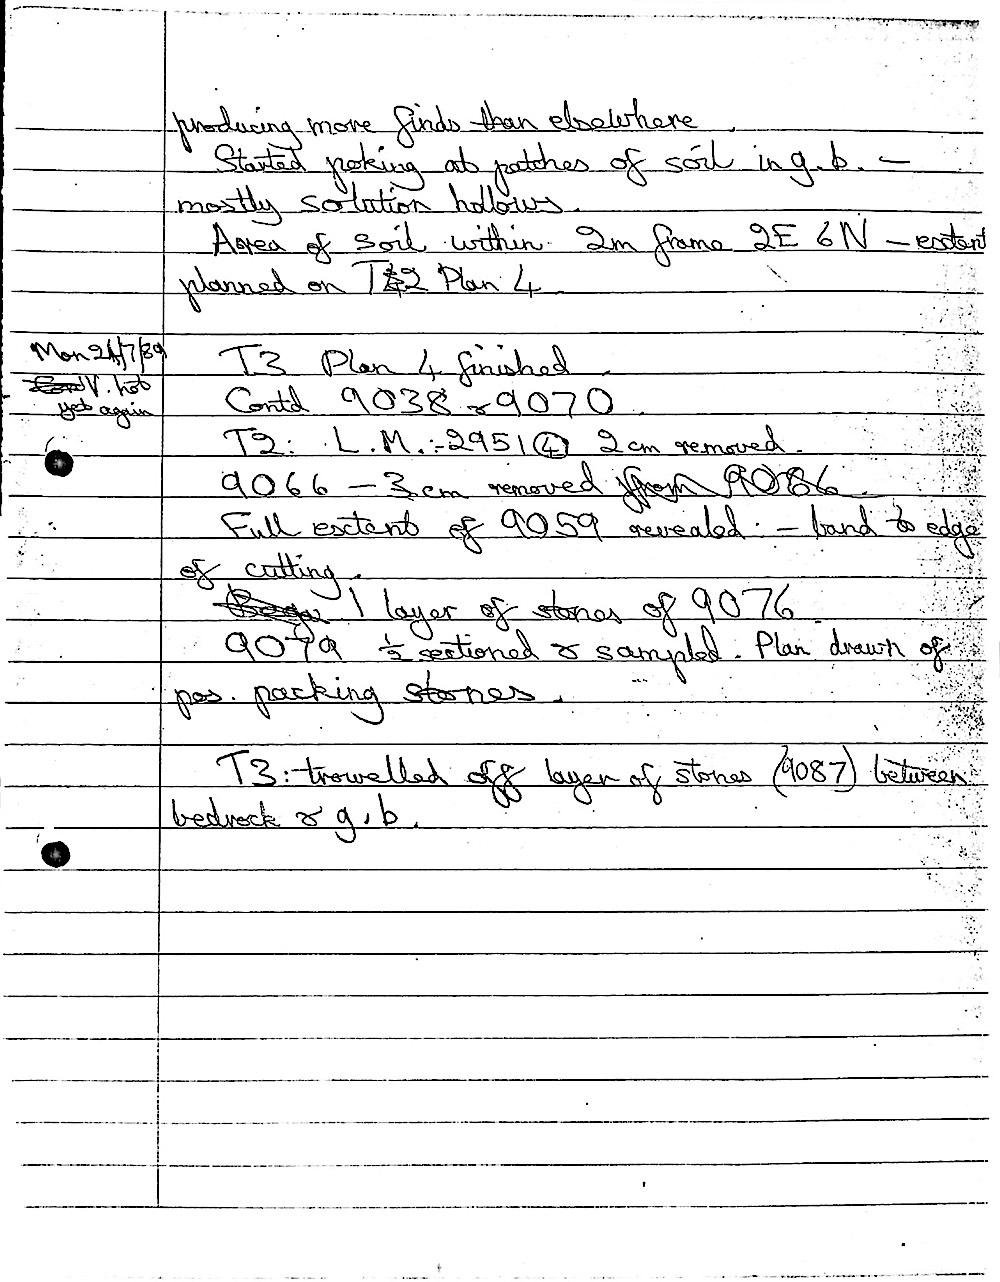 producing more finds than elsewhere.
Started poking at patches of soil in g.b. –
mostly solution hollows.
Area of soil within 2m frame 2E 6N – extent
planned on T2 Plan 4
Mon 24/7/89
V. hot
yet again
T3 Plan 4 finished.
Contd 9038 & 9070
T2: L.M. :- 2951 (4) 2cm removed.
9066 – 3cm removed from 9086
Full extent of 9059 revealed – band to edge
of cutting.
1 layer of stones of 9076
9079 ½ sectioned & sampled. Plan drawn of
pos. packing stones.
T3: trowelled off layer of stones (9087) between
bedrock & g.b.